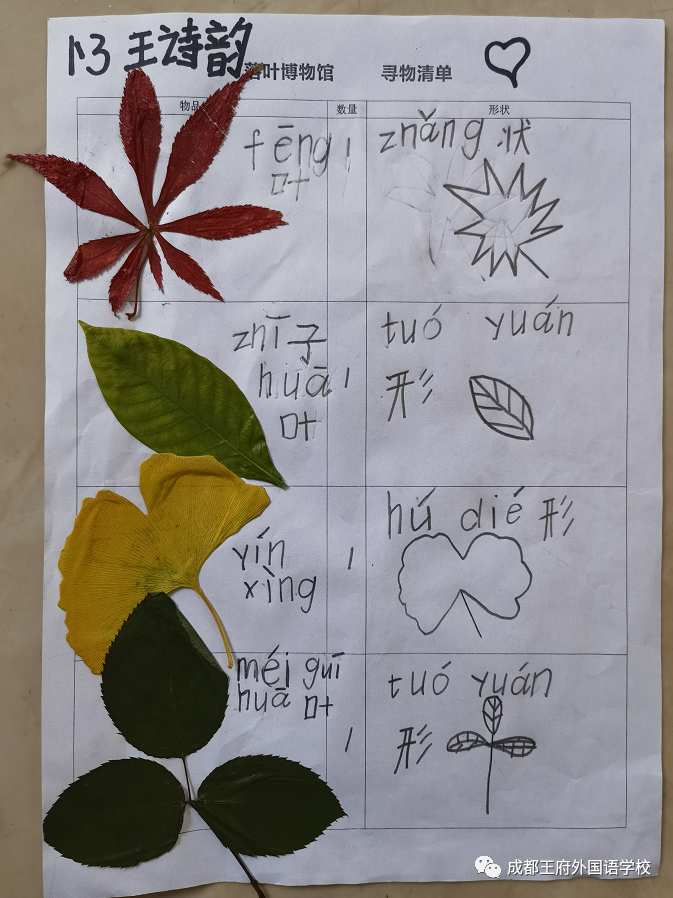 1.3 王诗韵
落叶博物馆 寻物清单
物品 数量 形状
fēng 1 zhǎng 状
叶
zhī子 tuó yuán
huā 1 形
叶
hú dié 形
yín 1
xìng
méi guī tuó yuán
huā 叶
1 形
成都王府外国语学校